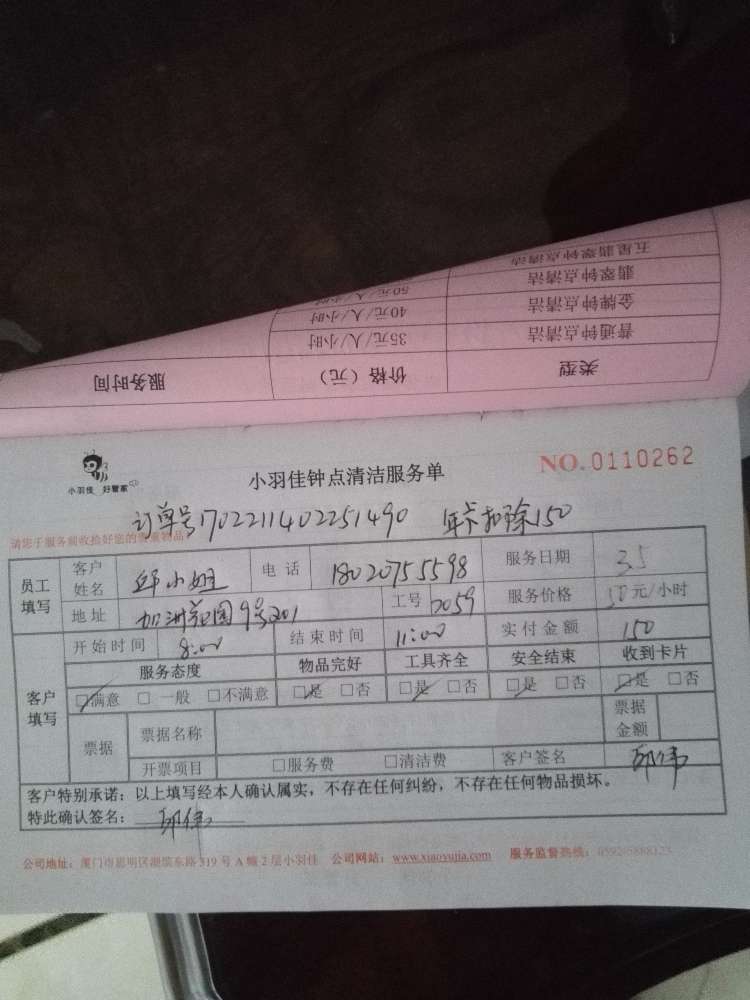 五星翡翠钟点清洁
翡翠钟点清洁 50元/人/小时
金牌钟点清洁 40元/人/小时
普通钟点清洁 35元/人/小时
类型 价格（元） 服务时间
小羽佳 好管家
小羽佳钟点清洁服务单
NO. 0110262
订单号1702211402251490 年卡扣除150
请您于服务前收拾好您的贵重物品
员工填写 客户姓名 邱小姐 电话 18020755598 服务日期 3.5
地址 加洲花园9号201 工号 2059 服务价格 50元/小时
客户填写 开始时间 8:00 结束时间 11:00 实付金额 150
服务态度 物品完好 工具齐全 安全结束 收到卡片
☑满意 □一般 □不满意 ☑是 □否 ☑是 □否 ☑是 □否 ☑是 □否
票据 票据名称 票据金额
开票项目 □服务费 □清洁费 客户签名 邱伟
客户特别承诺：以上填写经本人确认属实，不存在任何纠纷，不存在任何物品损坏。
特此确认签名： 邱伟
公司地址：厦门市思明区湖滨东路319号A幢2层小羽佳 公司网站：www.xiaoyujia.com 服务监督热线：0592-5888123